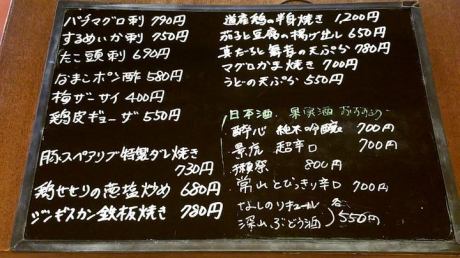 バチマグロ刺 790円
するめいか刺 750円
たこ頭刺 690円
なまこポン酢 580円
梅ザーサイ 400円
鶏皮ギョーザ 550円
豚スペアリブ特製ダレ焼き
730円
鶏せせりの壺塩炒め 680円
ジンギスカン鉄板焼き 780円
道産鶏の半身焼き 1,200円
茄子と豆腐の揚げ出し 650円
真だちと舞茸の天ぷら 780円
マグロかま焼き 700円
うどの天ぷら 550円
日本酒、果実酒
酔心 純米吟醸 700円
景虎 超辛口 700円
獺祭 800円
常山 とびっきり辛口 700円
なしのリキュール 各
深山ぶどう酒 550円